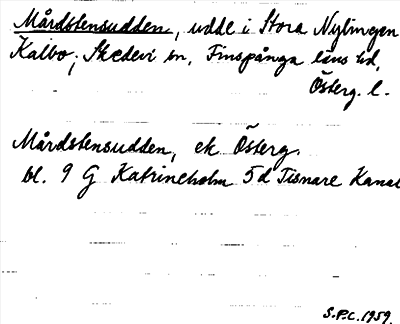 Mårdstensudden, udde i Stora Nylingen
Kalbo, Skedevi sn, Finspånga läns hd,
Österg. l.
Mårdstensudden, ek Österg.
bl. 9 G Katrineholm 5d Tisnare Kanal
S.P.C. 1959.